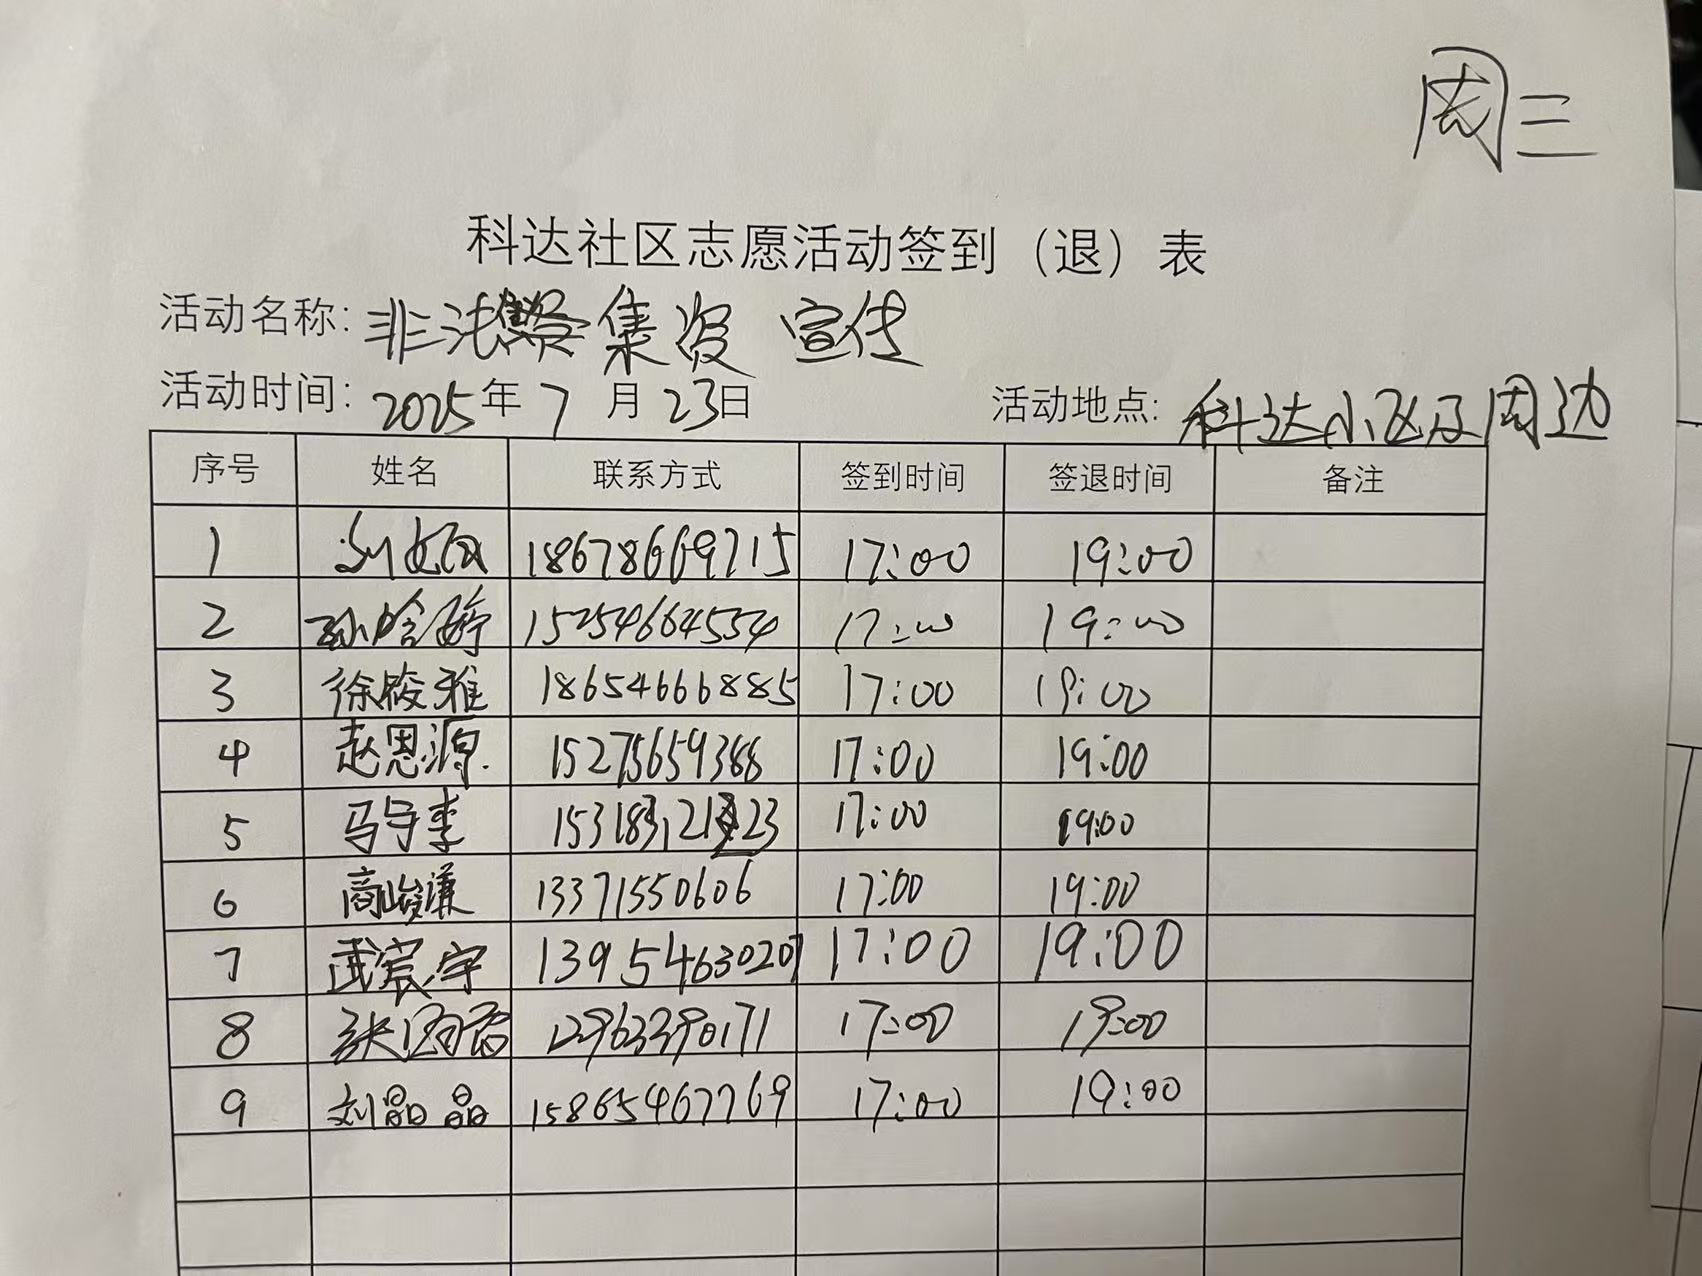 周三
科达社区志愿活动签到（退）表
活动名称: 非法集资 宣传
活动时间: 2025年 7 月 23日 活动地点: 科达小区及周边
序号 姓名 联系方式 签到时间 签退时间 备注
1 18678669715 17:00 19:00
2 15254664554 17:00 19:00
3 徐俊雅 18654666885 17:00 19:00
4 赵恩源 15275659388 17:00 19:00
5 马守李 17:00 19:00
6 高峻谦 13371550606 17:00 19:00
7 武宸宇 13954630207 17:00 19:00
8 17:00 19:00
9 刘晶晶 15865467769 17:00 19:00